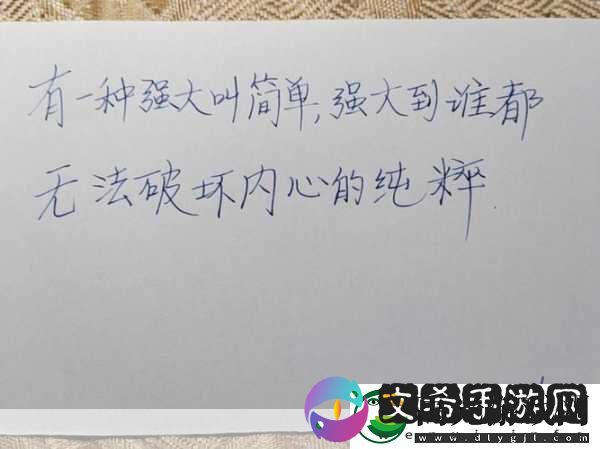 有一种强大叫简单,强大到谁都
无法破坏内心的纯粹.
文希手游网
www.dlygjl.com